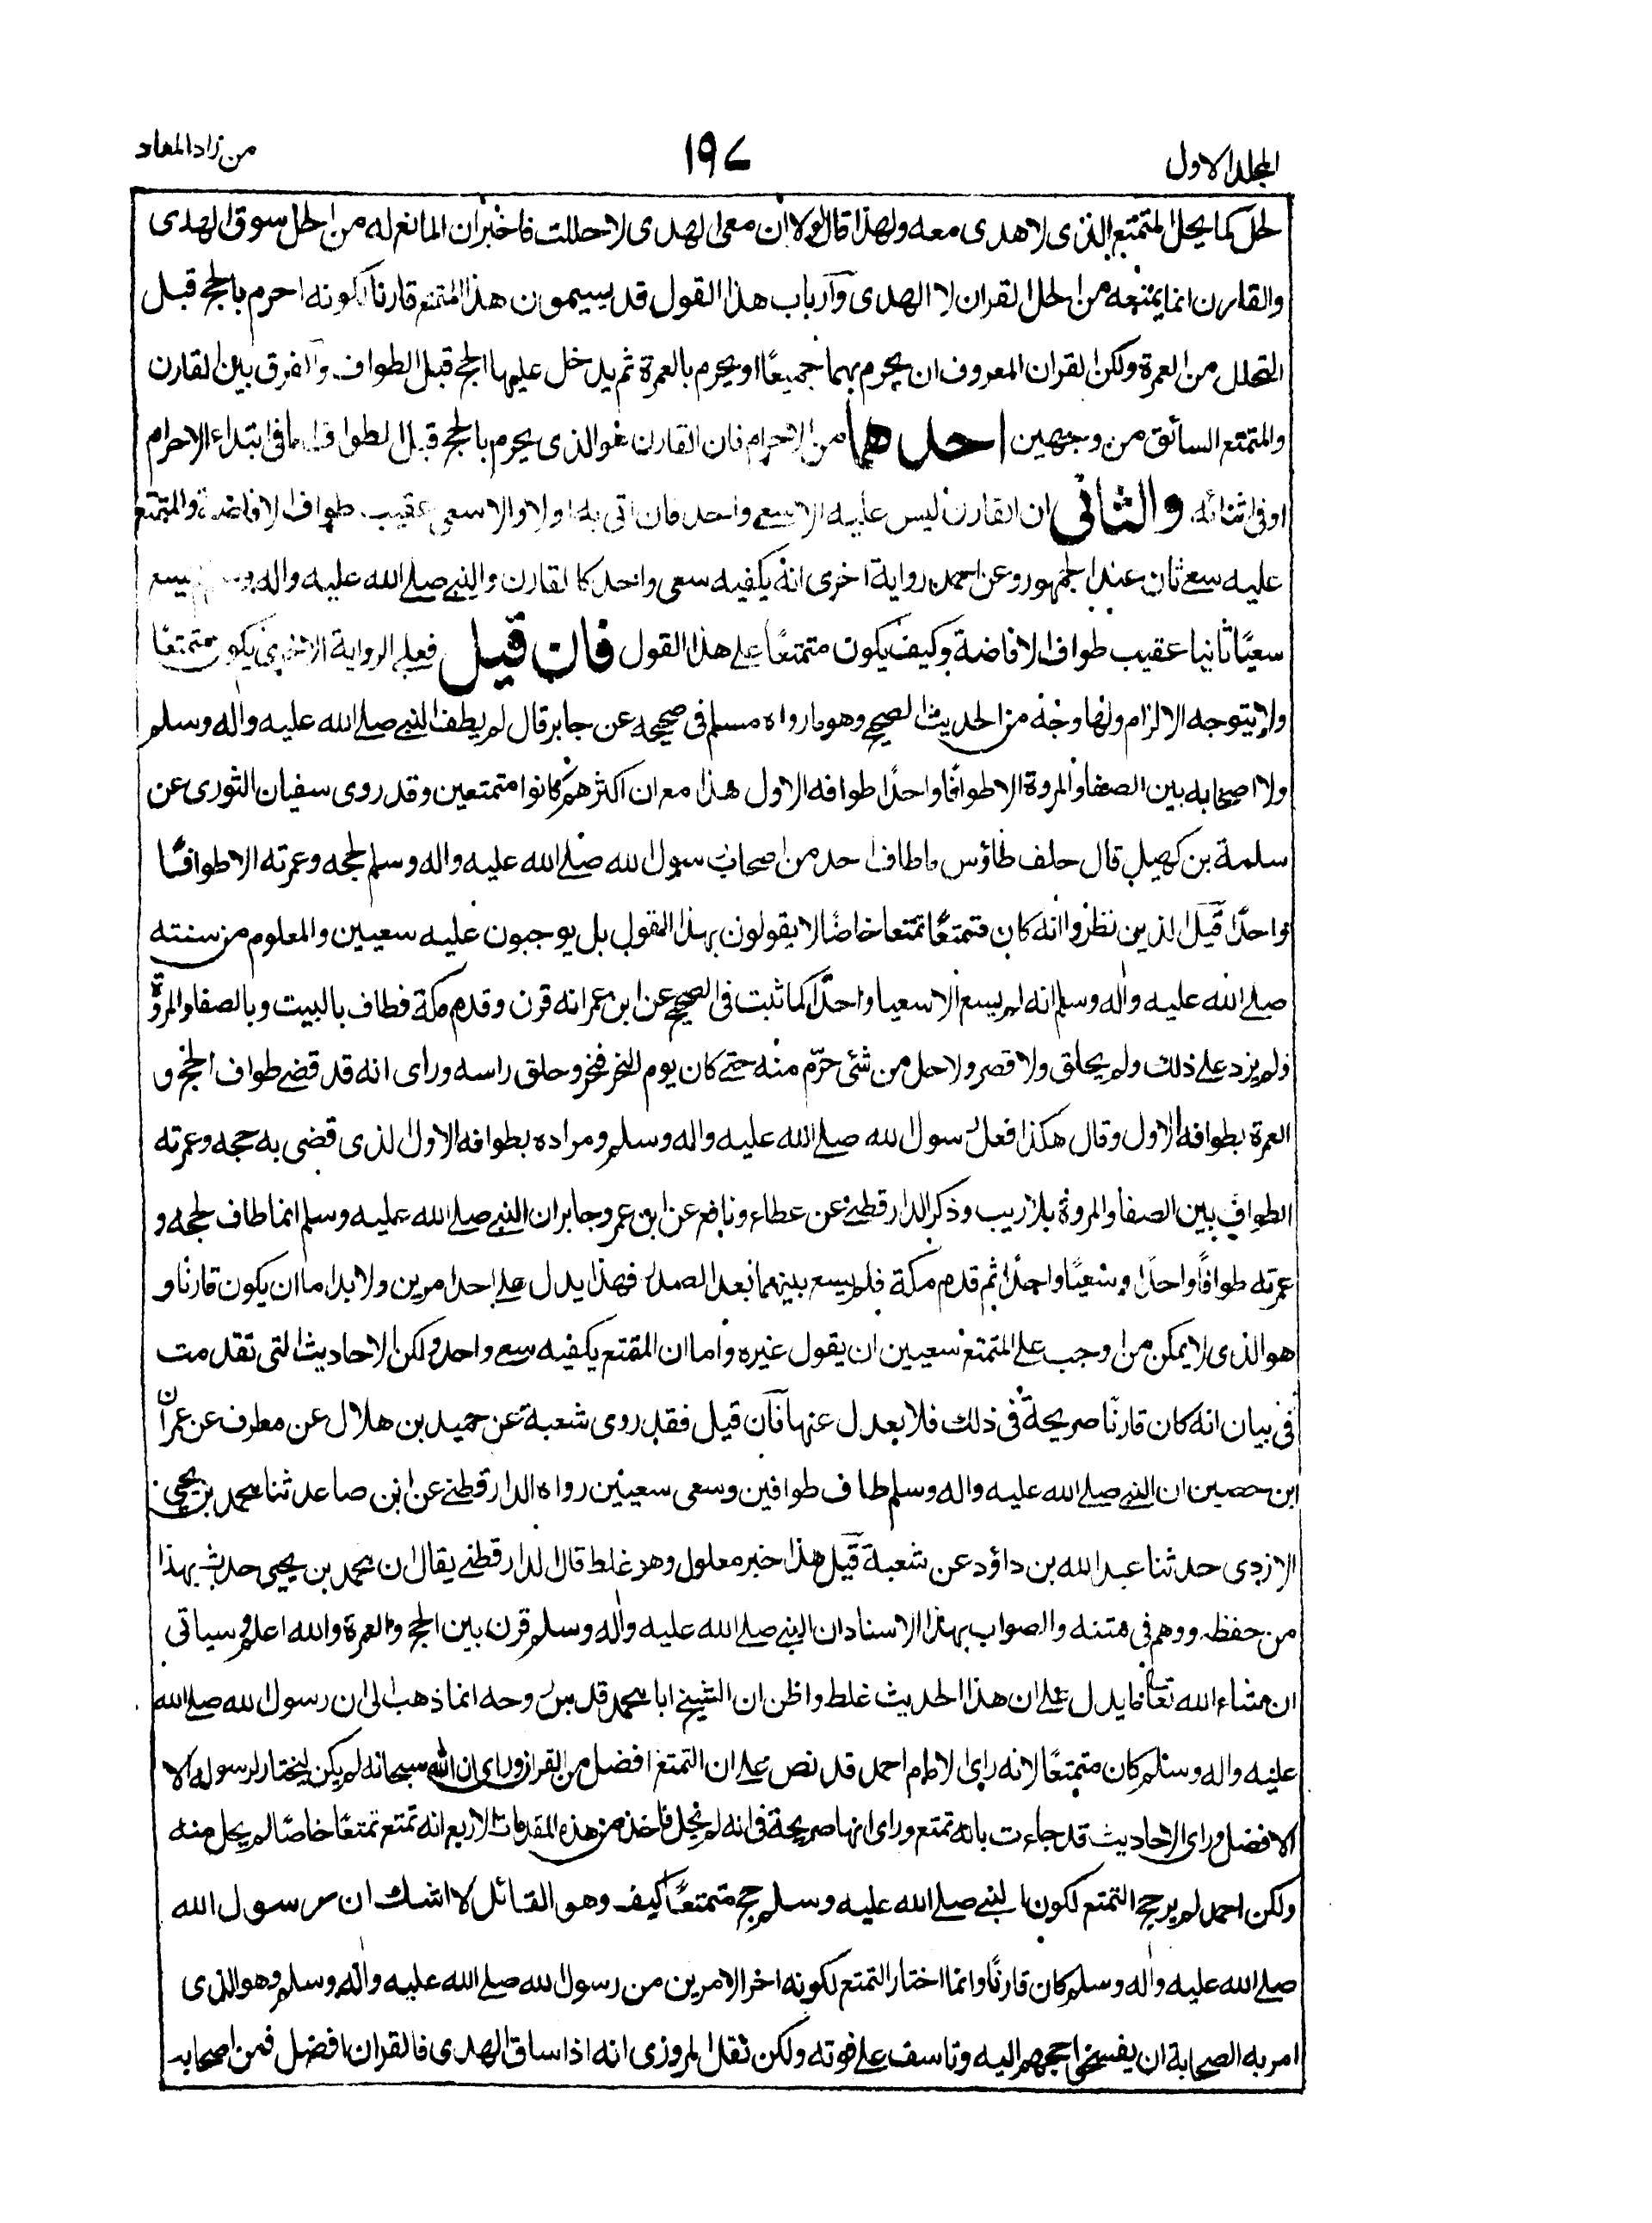 المجلد الاول
١٩٧
من زاد المعاد
لحل كما يحل المتمتع الذى لا هدى معه ولهذا قال لولا ان معى الهدى لاحللت فاخبر ان المانع له من الحل سوق الهدى
والقارن انما يمنعه من الحل القران لا الهدى وارباب هذا القول قد يسمون هذا المتمتع قارنا لكونه احرم بالحج قبل
التحلل من العمرة ولكن القران المعروف ان يحرم بهما جميعًا او يحرم بالعمرة ثم يدخل عليها الحج قبل الطواف والفرق بين القارن
والمتمتع السائق من وجهين احدهما من الاحرام فان القارن هو الذى يحرم بالحج قبل الطواف اما فى ابتداء الاحرام
او فى اثنائه والثانى ان القارن ليس عليه الا سعى واحد فان اتى به اولا والا سعى عقيب طواف الافاضة والمتمتع
عليه سعى ثان عند الجمهور وعن احمد رواية اخرى انه يكفيه سعى واحد كالقارن والنبى صلى الله عليه واله وسلم لم يسع
سعيًا ثانيا عقيب طواف الافاضة وكيف يكون متمتعًا على هذا القول فان قيل فعلى الرواية الاخرى يكون متمتعًا
ولا يتوجه الالزام ولها وجه من الحديث الصحيح وهو ما رواه مسلم فى صحيحه عن جابر قال لم يطف النبى صلى الله عليه واله وسلم
ولا اصحابه بين الصفا والمروة الا طوافًا واحدًا طوافه الاول هذا مع ان اكثرهم كانوا متمتعين وقد روى سفيان الثورى عن
سلمة بن كهيل قال حلف طاؤس ما طاف احد من اصحاب رسول الله صلى الله عليه واله وسلم لحجه وعمرته الا طوافًا
واحدًا قيل الذين نظروا انه كان متمتعًا تمتعا خاصًا لا يقولون بهذا القول بل يوجبون عليه سعيين والمعلوم من سنته
صلى الله عليه واله وسلم انه لم يسع الا سعيا واحدًا كما ثبت فى الصحيح عن ابن عمر انه قرن وقدم مكة فطاف بالبيت وبالصفا والمروة
ولم يزد على ذلك ولم يحلق ولا قصر ولا حل من شئ حرّم منه حتى كان يوم النحر فنحر وحلق راسه وراى انه قد قضى طواف الحج و
العمرة بطوافه الاول وقال هكذا فعل رسول الله صلى الله عليه واله وسلم ومراده بطوافه الاول الذى قضى به حجه وعمرته
الطواف بين الصفا والمروة بلا ريب وذكر الدارقطنى عن عطاء ونافع عن ابن عمر وجابر ان النبى صلى الله عليه وسلم انما طاف لحجه و
عمرته طوافًا واحدًا وسعيًا واحدًا ثم قدم مكة فلم يسع بينهما بعد الصدر فهذا يدل على احد امرين ولا بد اما ان يكون قارنًا و
هو الذى لا يمكن من اوجب على المتمتع سعيين ان يقول غيره واما ان المتمتع يكفيه سعى واحد ولكن الاحاديث التى تقدمت
فى بيان انه كان قارنًا صريحة فى ذلك فلا يعدل عنها فان قيل فقد روى شعبة عن حميد بن هلال عن مطرف عن عمران
ابن حصين ان النبى صلى الله عليه واله وسلم طاف طوافين وسعى سعيين رواه الدارقطنى عن ابن صاعد ثنا محمد بن يحيى
الازدى حدثنا عبد الله بن داؤد عن شعبة قيل هذا خبر معلول وهو غلط قال الدارقطنى يقال ان محمد بن يحيى حدث بهذا
من حفظه ووهم فى متنه والصواب بهذا الاسناد ان النبى صلى الله عليه واله وسلم قرن بين الحج والعمرة والله اعلم وسياتى
ان شاء الله تعالى ما يدل على ان هذا الحديث غلط واظن ان الشيخ ابا محمد قدس روحه انما ذهب الى ان رسول الله صلى الله
عليه واله وسلم كان متمتعًا لانه راى الامام احمد قد نص على ان التمتع افضل من القران وراى ان الله سبحانه لم يكن ليختار لرسوله الا
الافضل وراى الاحاديث قد جاءت بانه تمتع وراى انها صريحة فى انه لم يحل فاخذ من هذه المقدمات الاربع انه تمتع تمتعًا خاصًا لم يحل منه
ولكن احمد لم يرجح التمتع لكون النبى صلى الله عليه وسلم حج متمتعًا كيف وهو القائل لا اشك ان رسول الله
صلى الله عليه واله وسلم كان قارنًا وانما اختار التمتع لكونه اخر الامرين من رسول الله صلى الله عليه واله وسلم وهو الذى
امر به الصحابة ان يفسخوا حجهم اليه وتاسف على فوته ولكن نقل المروزى انه اذا ساق الهدى فالقران افضل فمن اصحابه